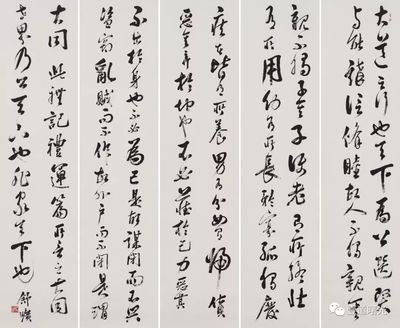 大道之行也天下為公選賢
与能講信修睦故人不獨親其
親不獨子其子使老有所終壯
有所用幼有所長矜寡孤獨廢
疾者皆有所養男有分女有歸貨
惡其棄於地也不必藏於己力惡其
不出於身也不必為己是故謀閉而不興
盜竊亂賊而不作故外戶而不閉是謂
大同 此禮記禮運篇所言之大同
世界乃公天下也非家天下也 舒